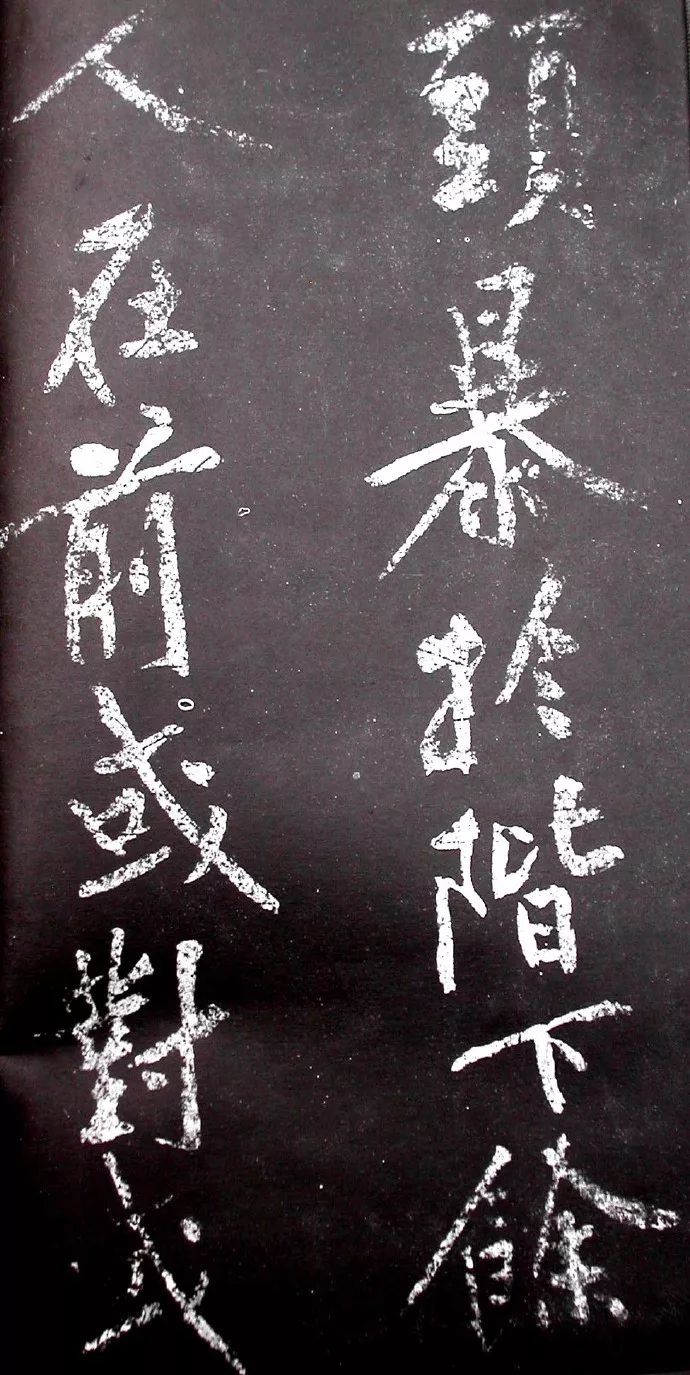 頭暴於階下餘
人在前或對或